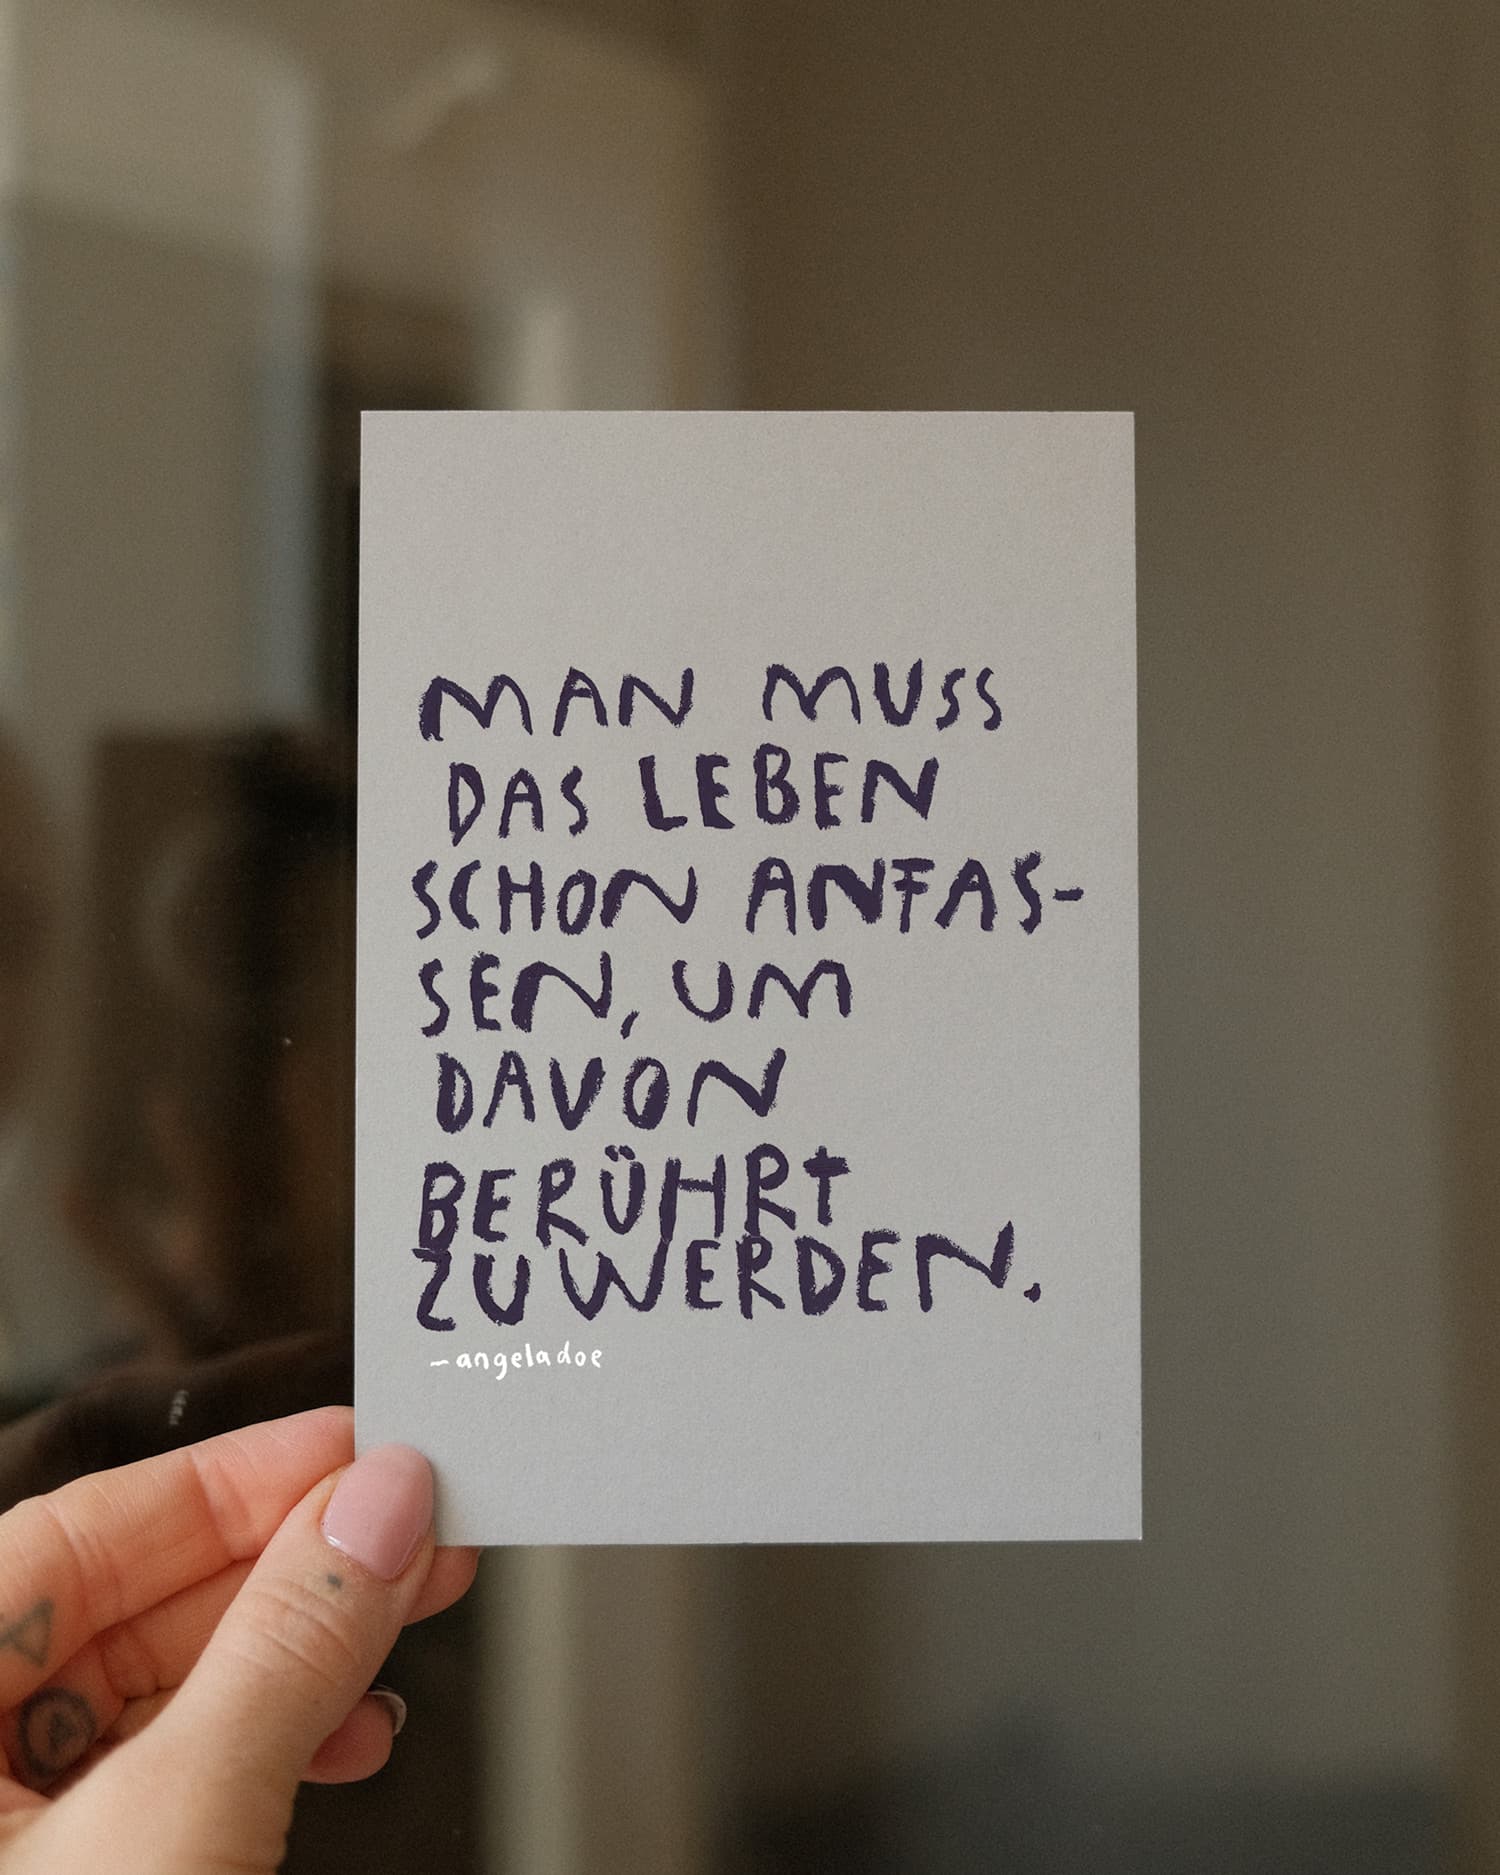 MAN MUSS
DAS LEBEN
SCHON ANFAS-
SEN, UM
DAVON
BERÜHRt
ZU WERDEN.
– angela doe